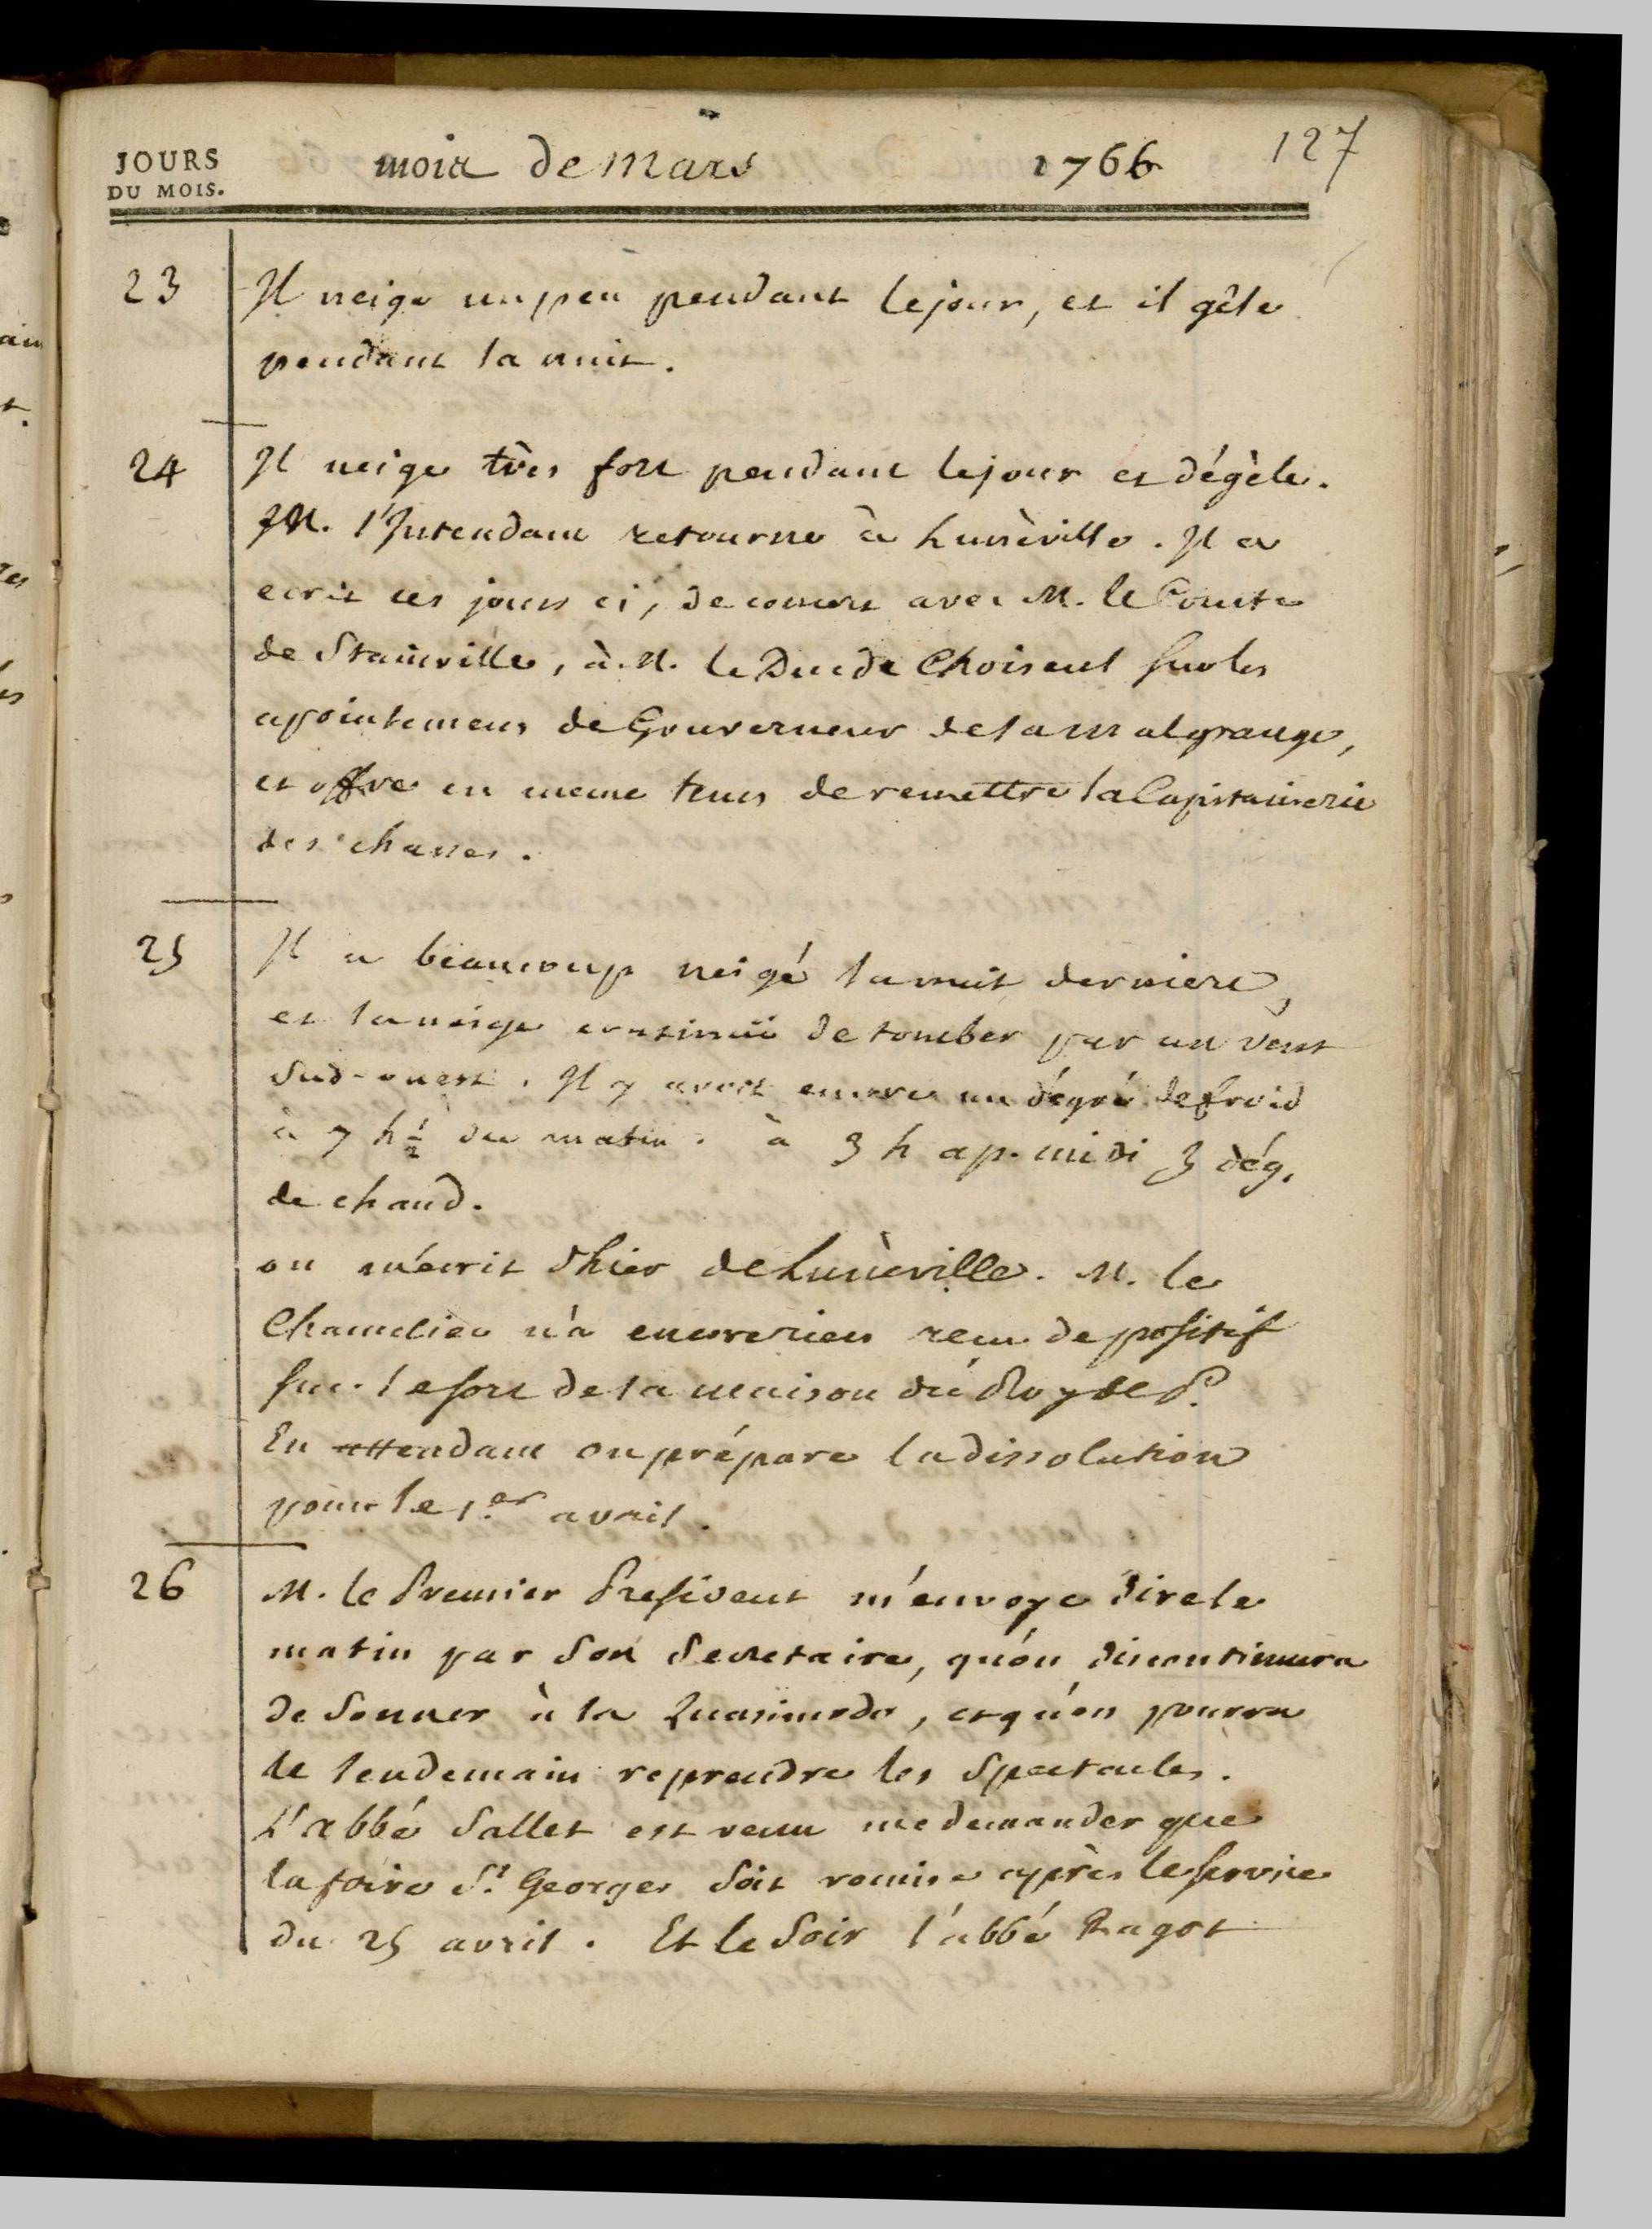 JOURS
DU MOIS.
mois de Mars 1766 127
23 Il neige un peu pendant le jour, et il gèle
pendant la nuit.
24 Il neige très fort pendant le jour et dégèle.
M. l'Intendant retourne à Lunèville. Il a
ecrit ces jours ci, de concert avec M. le Comte
de Stainville, à M. le Duc de Choiseul sur les
apointemens de Gouverneur de la malgrange,
et offre en meme tems de remettre la Capitainerie
des chasses.
25 Il a beaucoup neigé la nuit derniere,
et la neige continüe de tomber par un vent
Sud-ouest. Il y avoit encore un dégré de froid
à 7 h ½ du matin. à 3 h ap. midi 3 dég.
de chaud.
on m'écrit d'hier de Lunèville. M. le
Chancelier n'a encore rien recu de positif
sur le sort de la maison du Roy de P.
En attendant on prépare la dissolution
pour le 1.er avril.
26 M. le Premier President m'envoye dire le
matin par son Secretaire, qu'on discontinuera
de sonner à la Quasimodo, et qu'on pourra
le lendemain reprendre les Spectacles.
L'abbé Sallet est venu me demander que
la foire St. Georges soit remise après le service
du 25 avril. Et le soir l'abbé Ragot